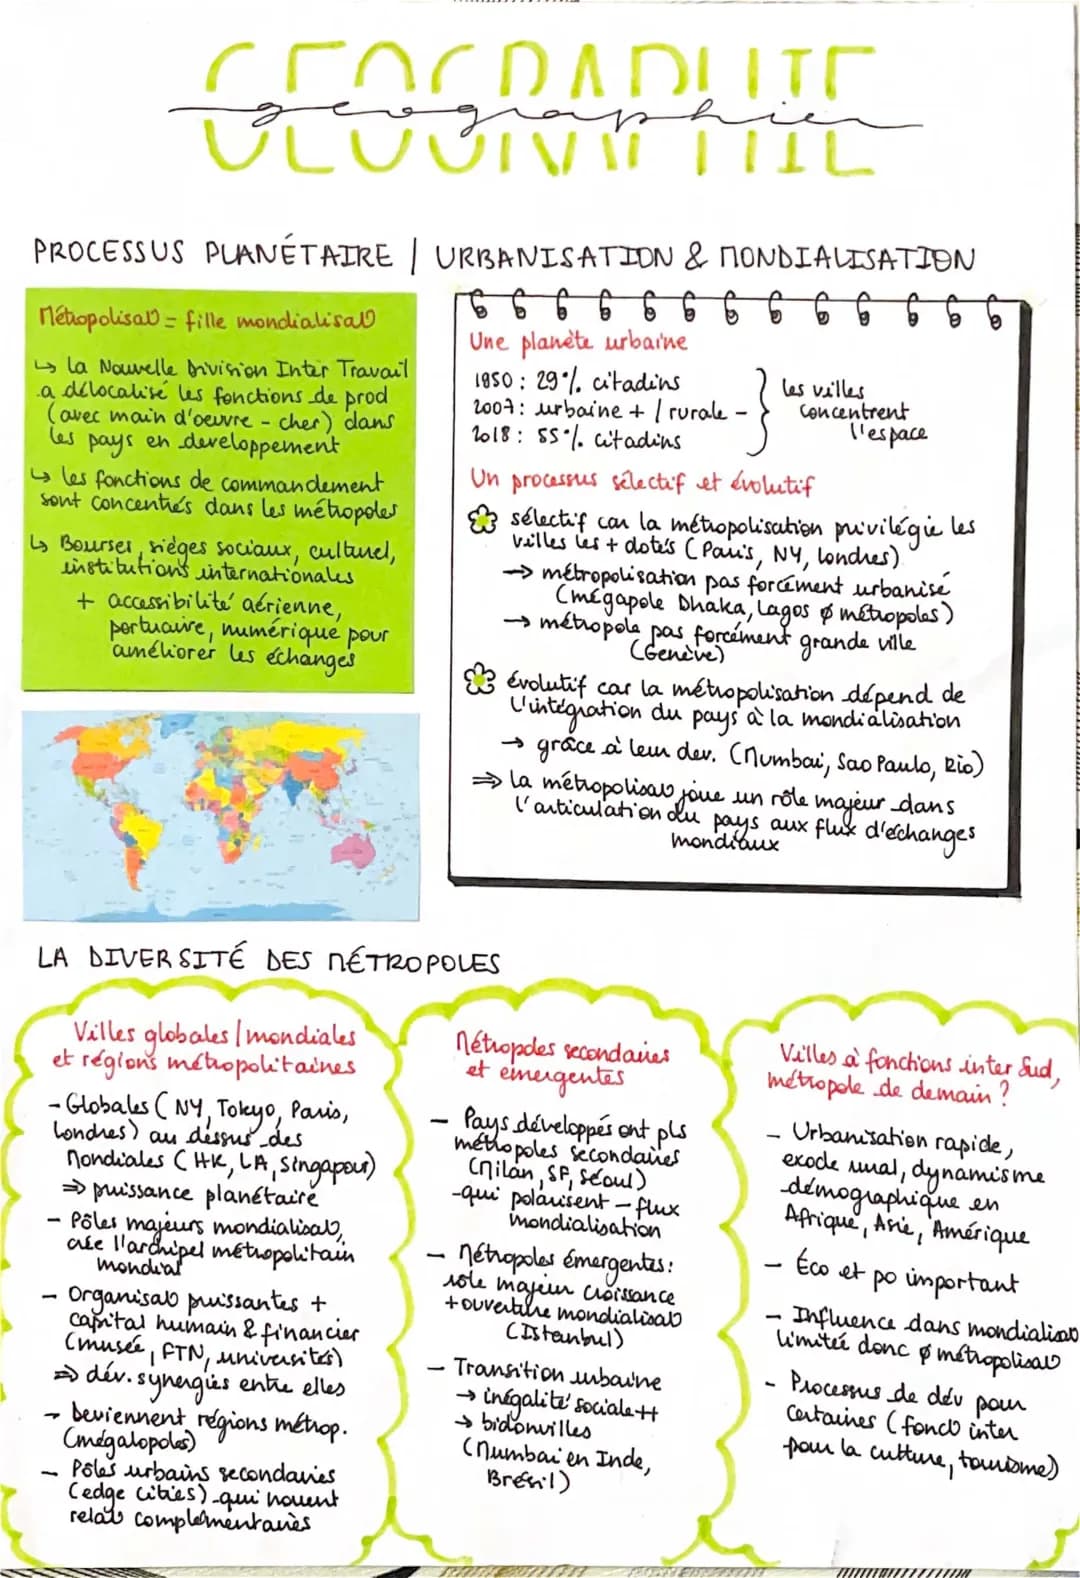 GEOGRAPHIE
geographie
PROCESSUS PLANÉTAIRE / URBANISATION & MONDIALISATION
Métropolisa° = fille mondialisa°
↳ la Nouvelle Division Inter Travail
a délocalisé les fonctions de prod
(avec main d'oeuvre - cher) dans
les pays en developpement
↳ les fonctions de commandement
sont concentrés dans les métropoles
↳ Bourses, sièges sociaux, culturel,
institutions internationales
+ accessibilité aérienne,
portuaire, numérique pour
améliorer les échanges
Une planète urbaine
1850 : 29 % citadins
2007 : urbaine + / rurale -
2018 : 55 % citadins
les villes
concentrent
l'espace
Un processus sélectif et évolutif
sélectif car la métropolisation privilégie les
villes les + dotés (Paris, NY, Londres)
→ métropolisation pas forcément urbanisé
(mégapole Dhaka, Lagos ø métropoles)
→ métropole pas forcément grande ville
(Genève)
évolutif car la métropolisation dépend de
l'intégration du pays à la mondialisation
→ grâce à leur dev. (Mumbai, Sao Paulo, Rio)
⇒ la métropolisa° joue un rôle majeur dans
l'articulation du pays aux flux d'échanges
mondiaux
LA DIVERSITÉ DES MÉTROPOLES
Villes globales / mondiales
et régions métropolitaines
- Globales (NY, Tokyo, Paris,
Londres) au dessus des
Mondiales (HK, LA, Singapour)
⇒ puissance planétaire
- Pôles majeurs mondialisa°,
crée l'archipel métropolitain
mondial
- Organisa° puissantes +
capital humain & financier
(musée, FTN, universités)
⇒ dév. synergies entre elles
- Deviennent régions métrop.
(mégalopoles)
- Pôles urbains secondaires
(edge cities) qui nouent
relat° complémentaires
Métropoles secondaires
et émergentes
- Pays développés ont pls
métropoles secondaires
(Milan, SF, Séoul)
-qui polarisent - flux
mondialisation
- Métropoles émergentes:
rôle majeur croissance
+ ouverture mondialisa°
(Istanbul)
- Transition urbaine
→ inégalité sociale ++
→ bidonvilles
(Mumbai en Inde,
Brésil)
Villes à fonctions inter Sud,
métropole de demain ?
- Urbanisation rapide,
exode rural, dynamisme
démographique en
Afrique, Asie, Amérique
- Éco et po important
- Influence dans mondialisa°
limitée donc ø métropolisa°
- Processus de dév pour
certaines (fonct° inter
pour la culture, tourisme)